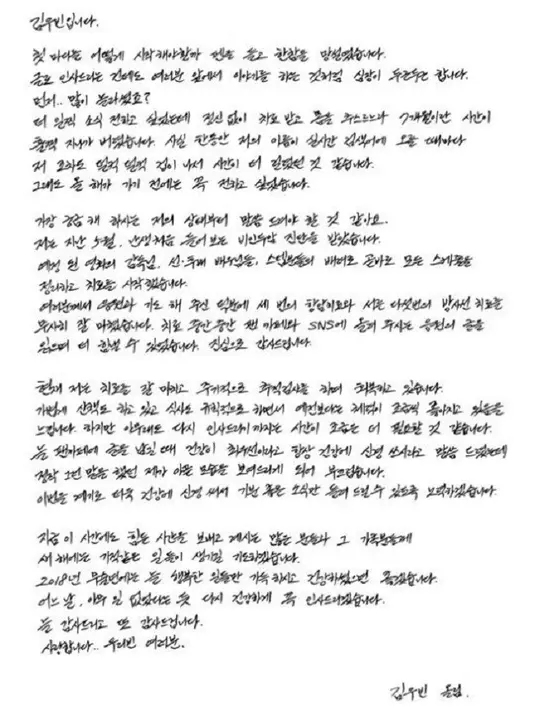 김우빈입니다.
첫 마디는 어떻게 시작해야할까 펜을 들고 한참을 망설였습니다.
글로 인사드리는 건데도 여러분 앞에서 이야기를 하는 것처럼 심장이 두근두근 합니다.
먼저.. 많이 놀라셨죠?
더 일찍 소식 전하고 싶었는데 정신없이 치료 받고 몸을 추스르느라 7개월이란 시간이
훌쩍 지나가 버렸습니다. 사실 한동안 저의 이름이 실시간 검색어에 오를 때마다
저 조차도 덜컥 덜컥 겁이 나서 시간이 더 걸렸던 것 같습니다.
그래도 올 해가 가기 전에는 꼭 전하고 싶었습니다.
가장 궁금해 하시는 저의 상태부터 말씀 드려야 할 것 같아요.
저는 지난 5월, 난생처음 들어보는 비인두암 진단을 받았습니다.
예정 된 영화의 감독님, 선·후배 배우님들, 스텝분들의 배려로 곧바로 모든 스케줄을
정리하고 치료를 시작했습니다.
여러분께서 응원과 기도 해 주신 덕분에 세 번의 항암치료와 서른 다섯번의 방사선 치료를
무사히 잘 마쳤습니다. 치료 중간중간 팬 카페와 SNS에 올려 주시는 응원의 글을
읽으며 더 힘낼 수 있었습니다. 진심으로 감사드립니다.
현재 저는 치료를 잘 마치고 주기적으로 추적검사를 하며 회복하고 있습니다.
가볍게 산책도 하고 있고 식사도 규칙적으로 하면서 예전보다는 체력이 조금씩 좋아지고 있음을
느낍니다. 하지만 아무래도 다시 인사드리기까지는 시간이 조금은 더 필요할 것 같습니다.
늘 팬카페에 글을 남길 때 건강이 최우선이라고 항상 건강에 신경 쓰시라고 말씀 드렸는데
정작 그런 말을 했던 제가 아픈 모습을 보여드리게 되어 부끄럽습니다.
이번을 계기로 더욱 건강에 신경 써서 기분 좋은 소식만 들려 드릴 수 있도록 노력하겠습니다.
지금 이 시간에도 힘든 시간을 보내고 계시는 많은 분들과 그 가족분들께
새 해에는 기적같은 일들이 생기길 기도하겠습니다.
2018년 무술년에는 늘 행복한 일들만 가득 하시고 건강하셨으면 좋겠습니다.
어느 날, 아무 일 없었다는 듯 다시 건강하게 꼭 인사드리겠습니다.
늘 감사드리고 또 감사드립니다.
사랑합니다.. 우리빈 여러분.
김우빈 올림.